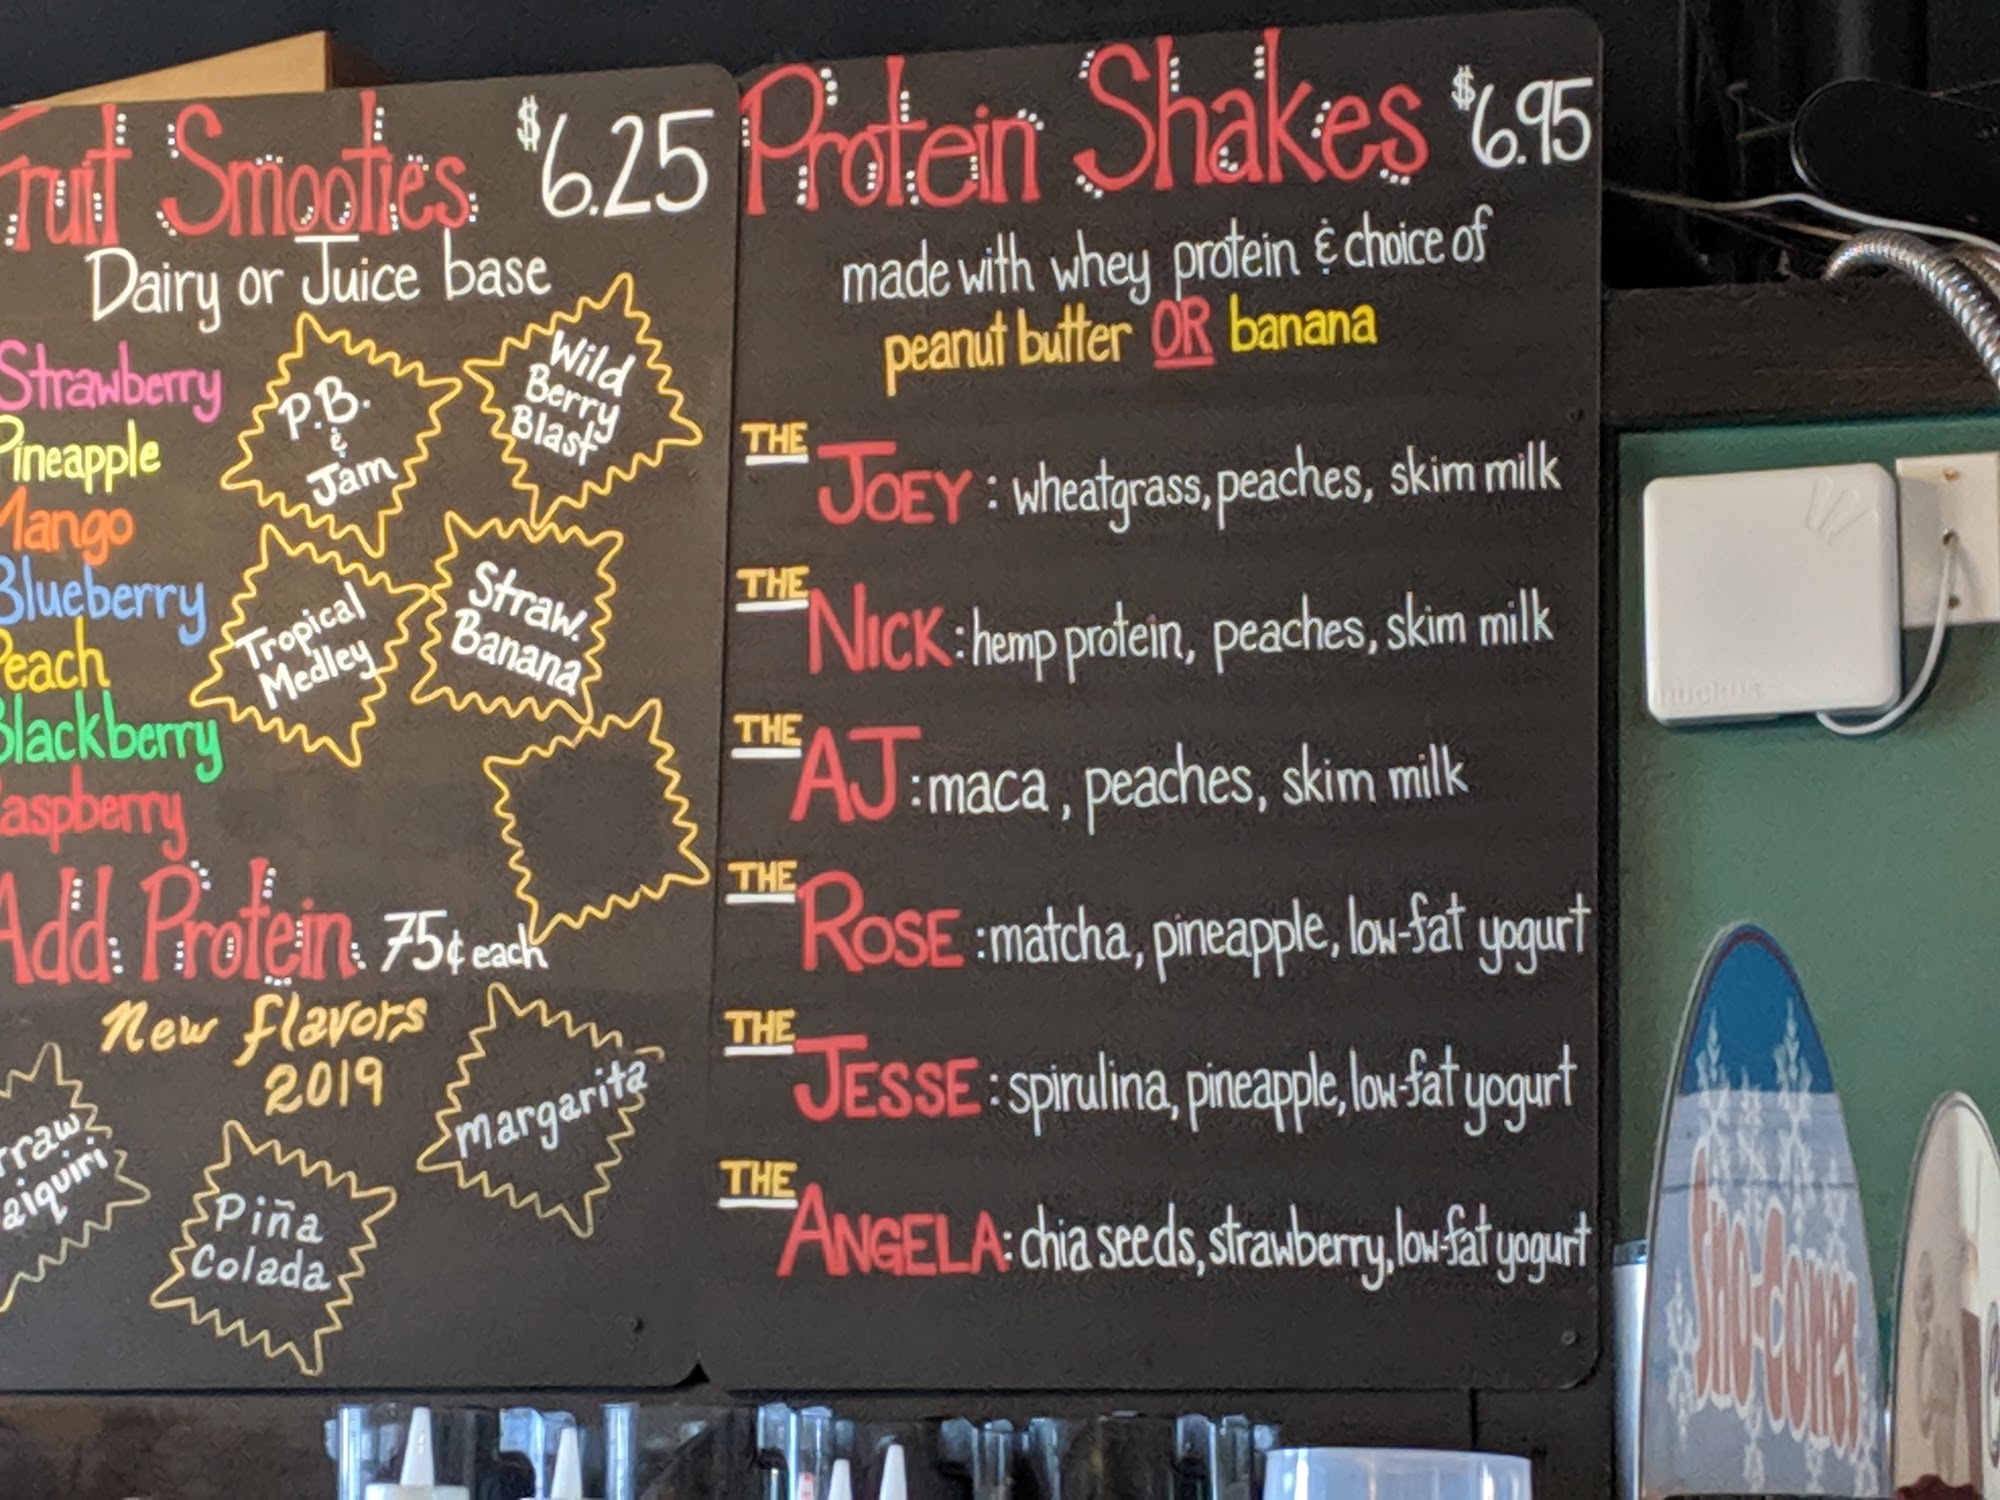 Fruit Smooties $6.25
Dairy or Juice base
Strawberry
Pineapple
Mango
Blueberry
Peach
Blackberry
Raspberry
P.B.
&
Jam
Wild
Berry
Blast
Tropical
Medley
Straw.
Banana
Add Protein 75¢ each
New flavors
2019
Margarita
Piña
Colada
Protein Shakes $6.95
made with whey protein & choice of
peanut butter OR banana
THE JOEY: wheatgrass, peaches, skim milk
THE NICK: hemp protein, peaches, skim milk
THE AJ: maca, peaches, skim milk
THE ROSE: matcha, pineapple, low-fat yogurt
THE JESSE: spirulina, pineapple, low-fat yogurt
THE ANGELA: chia seeds, strawberry, low-fat yogurt
Sno-Cones